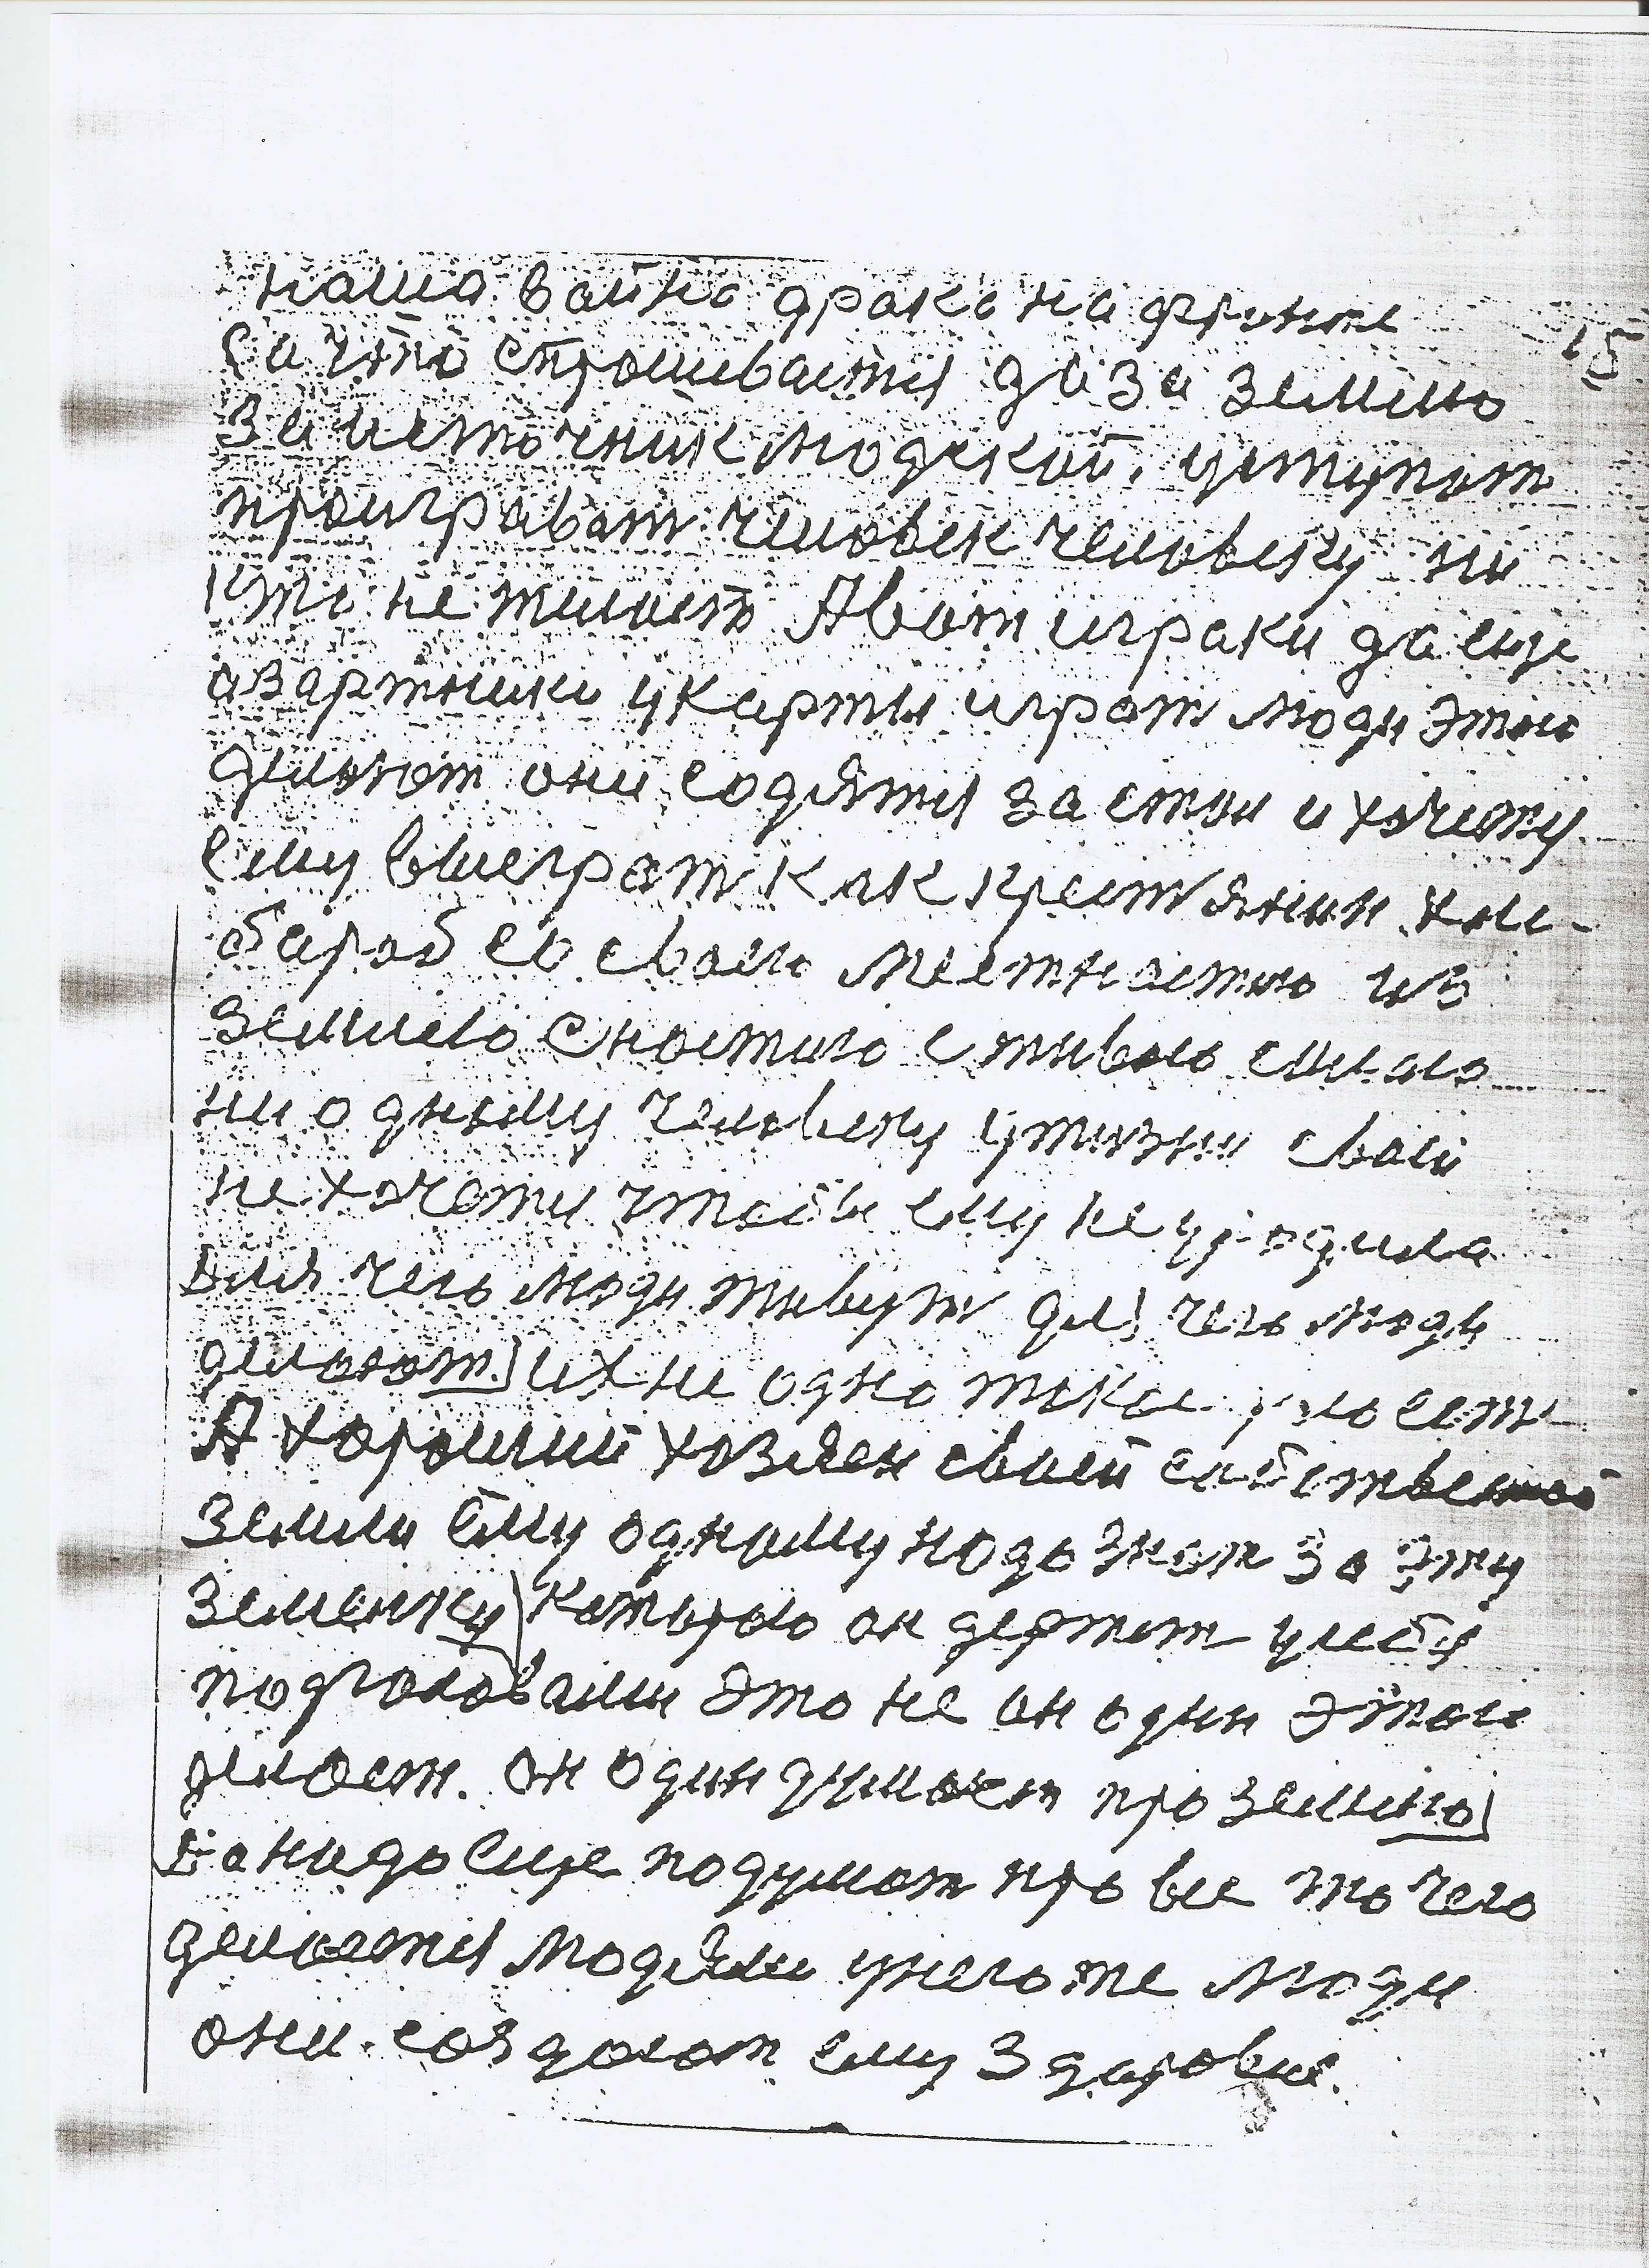 наша вайна драка на фронте
15
За что спрошиваится да за землю
за источник людской, уступат
проиграват человек человеку ни
кто не жилает А вот играки да еще
азартники укарты играт люди Это
делают они содятся за стол и хочится
ему виеграт как крестянин хле-
бароб со своею местностию из
землею сносилою с живою силою
ни одному человеку жизни своей
не хочется чтобы ему не уродила
Для чего люди живут для чего люди
делают. их не одно такое дело есть
А хороший хозяен своей собственной
земли Ему одному надо знат за эту
земельку которою он держит у себя
подголовами Это не он один Это
делает. Он один думает про землю
Да надо еще подумат про все то чего
делается людями у него же люди
они создают ему здаровие.